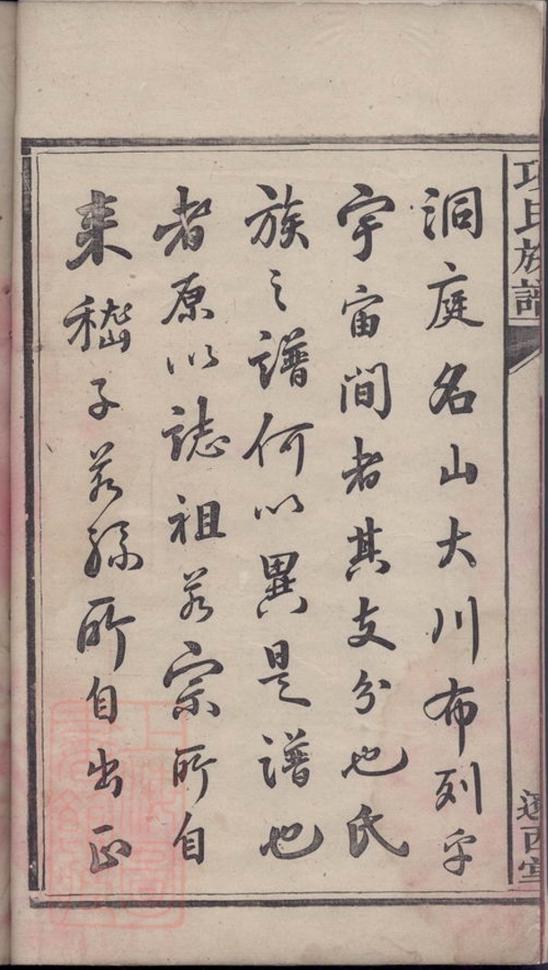 項氏族譜
洞庭名山大川布列乎
宇宙間者其支分也氏
族之譜何以異是譜也
者原以誌祖若宗所自
来嵇子若孫所自出正